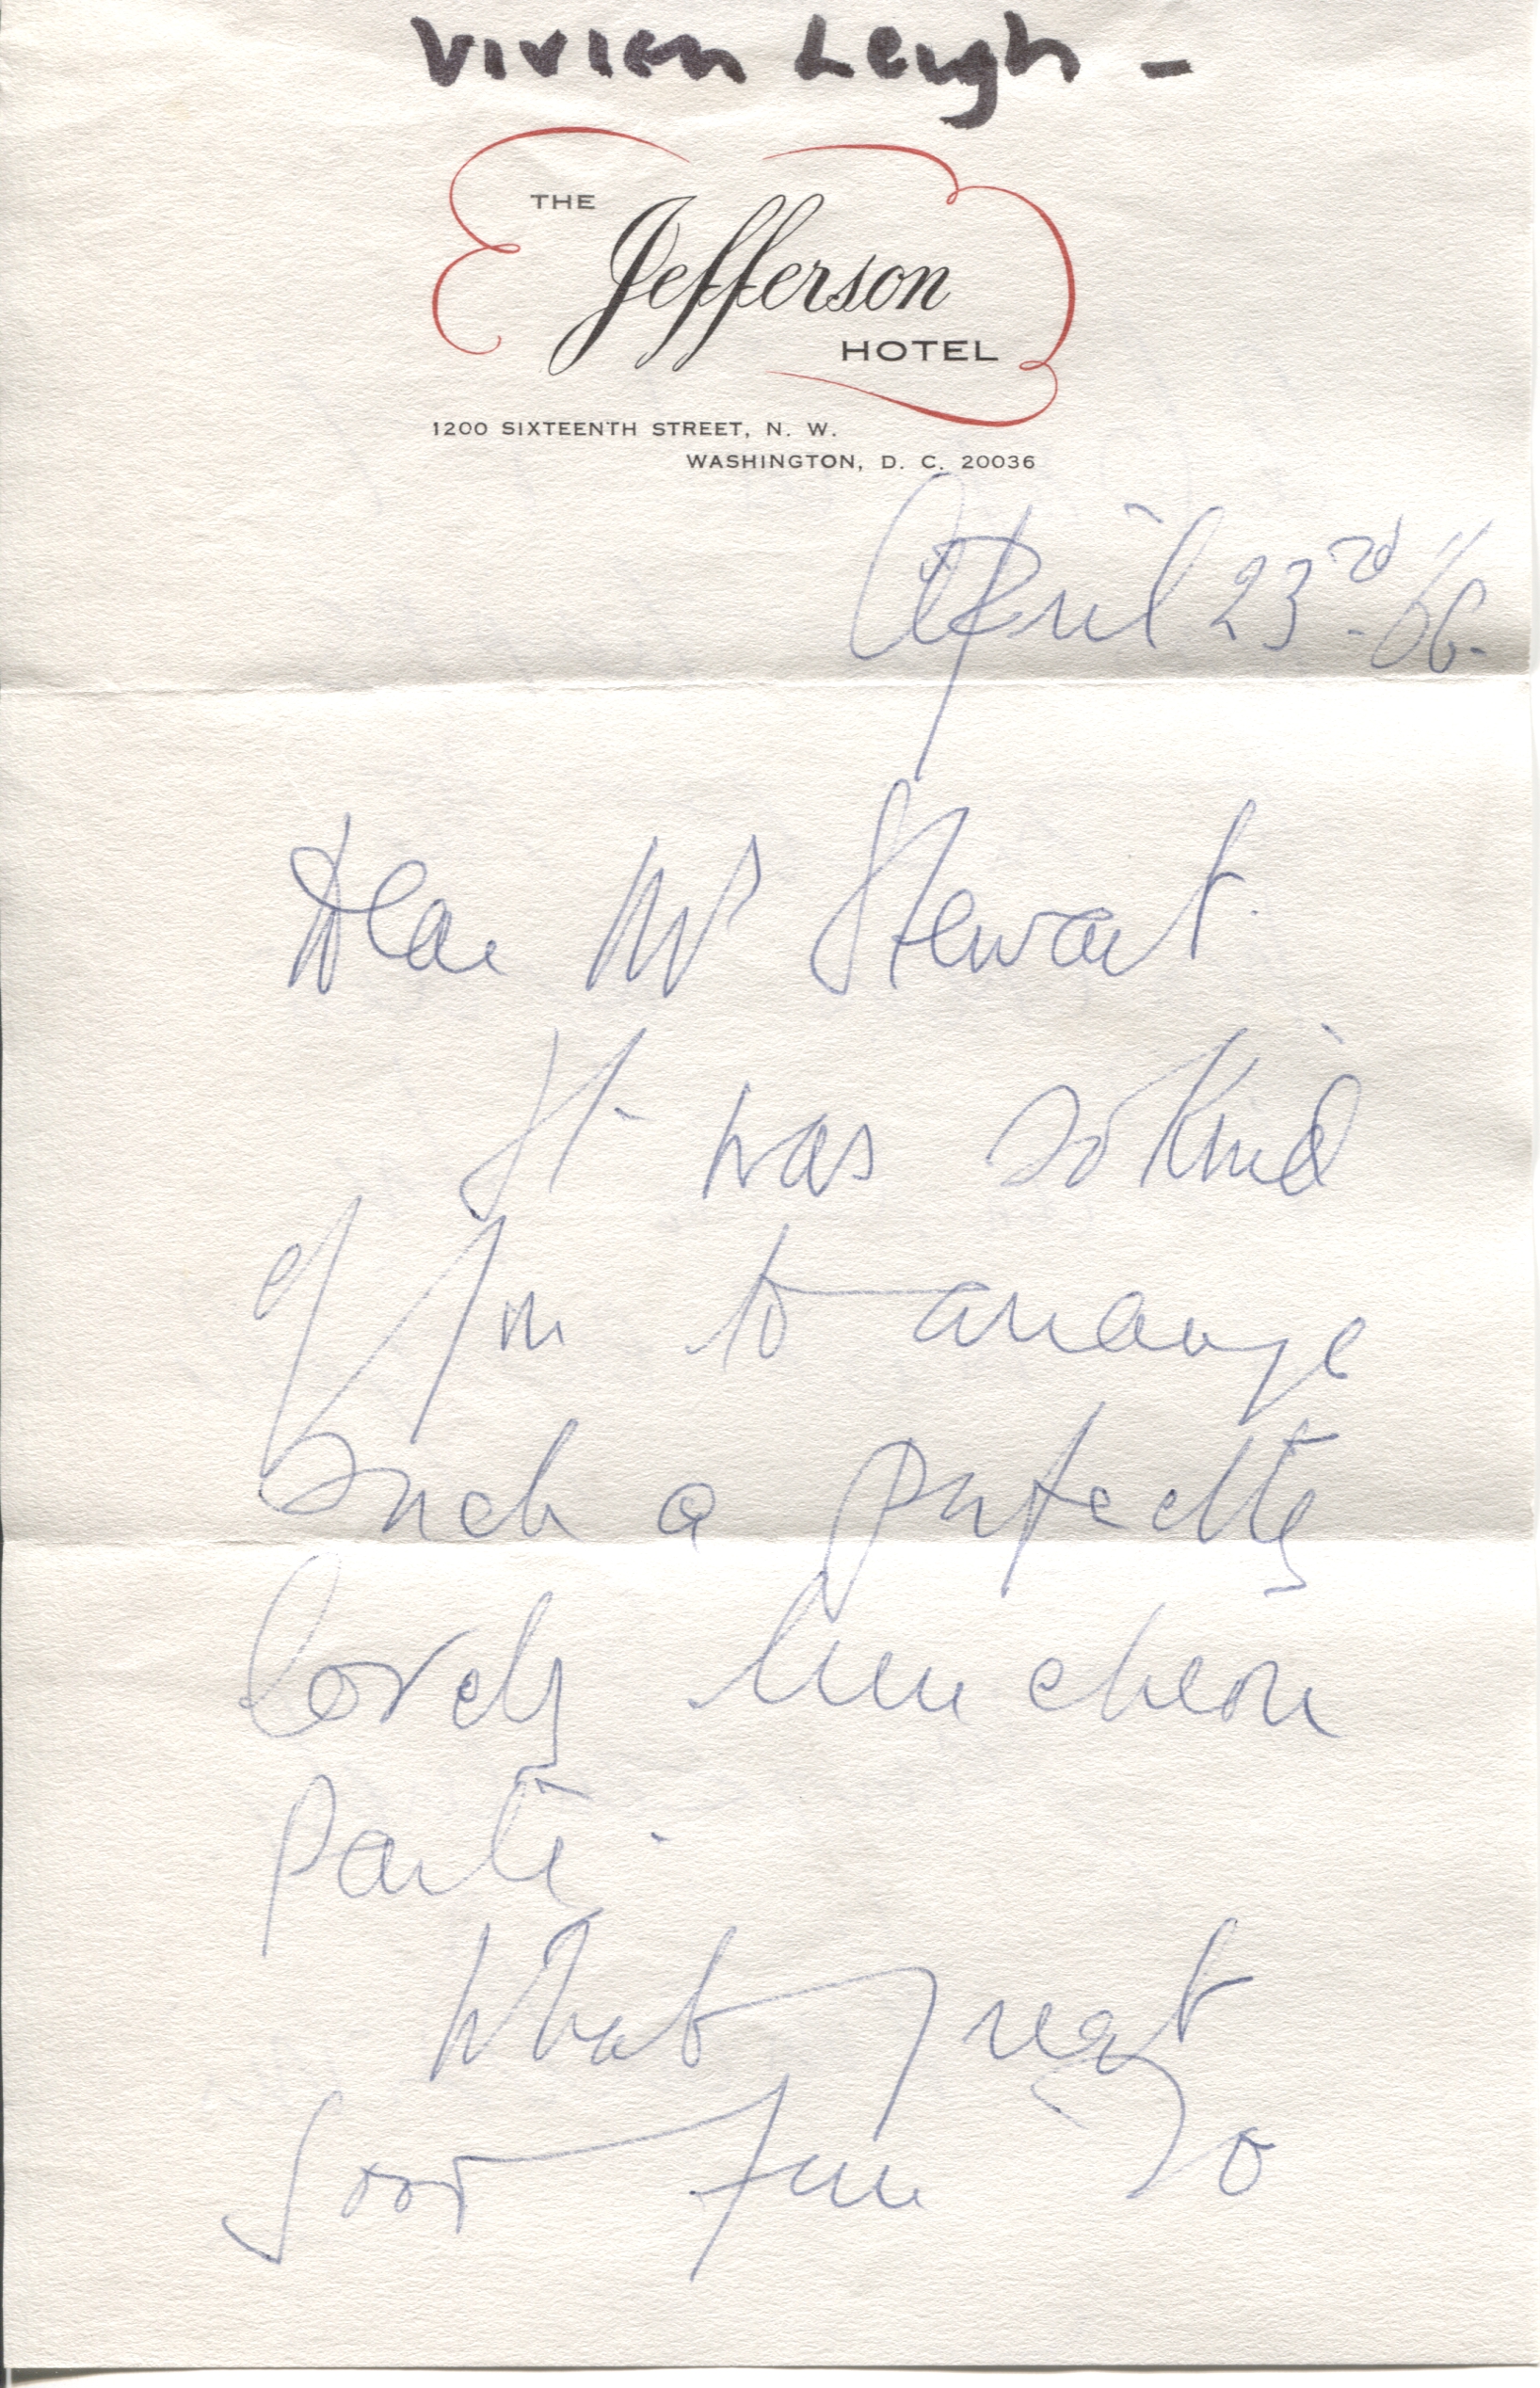 Vivien Leigh -
THE
Jefferson
HOTEL
1200 SIXTEENTH STREET, N. W.
WASHINGTON, D. C. 20036
April 23rd "66.
Dear Mr Stewart.
It was so kind
of you to arrange
such a perfectly
lovely luncheon
party.
What great
good fun so